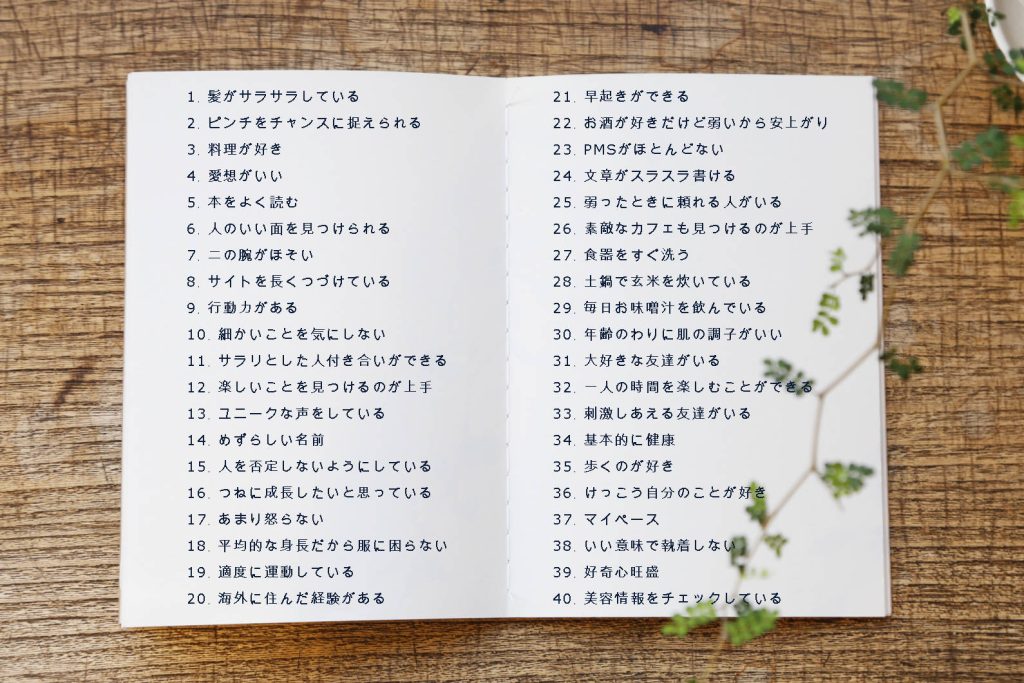 1. 髪がサラサラしている
2. ピンチをチャンスに捉えられる
3. 料理が好き
4. 愛想がいい
5. 本をよく読む
6. 人のいい面を見つけられる
7. 二の腕がほそい
8. サイトを長くつづけている
9. 行動力がある
10. 細かいことを気にしない
11. サラリとした人付き合いができる
12. 楽しいことを見つけるのが上手
13. ユニークな声をしている
14. めずらしい名前
15. 人を否定しないようにしている
16. つねに成長したいと思っている
17. あまり怒らない
18. 平均的な身長だから服に困らない
19. 適度に運動している
20. 海外に住んだ経験がある
21. 早起きができる
22. お酒が好きだけど弱いから安上がり
23. PMSがほとんどない
24. 文章がスラスラ書ける
25. 弱ったときに頼れる人がいる
26. 素敵なカフェも見つけるのが上手
27. 食器をすぐ洗う
28. 土鍋で玄米を炊いている
29. 毎日お味噌汁を飲んでいる
30. 年齢のわりに肌の調子がいい
31. 大好きな友達がいる
32. 一人の時間を楽しむことができる
33. 刺激しあえる友達がいる
34. 基本的に健康
35. 歩くのが好き
36. けっこう自分のことが好き
37. マイペース
38. いい意味で執着しない
39. 好奇心旺盛
40. 美容情報をチェックしている